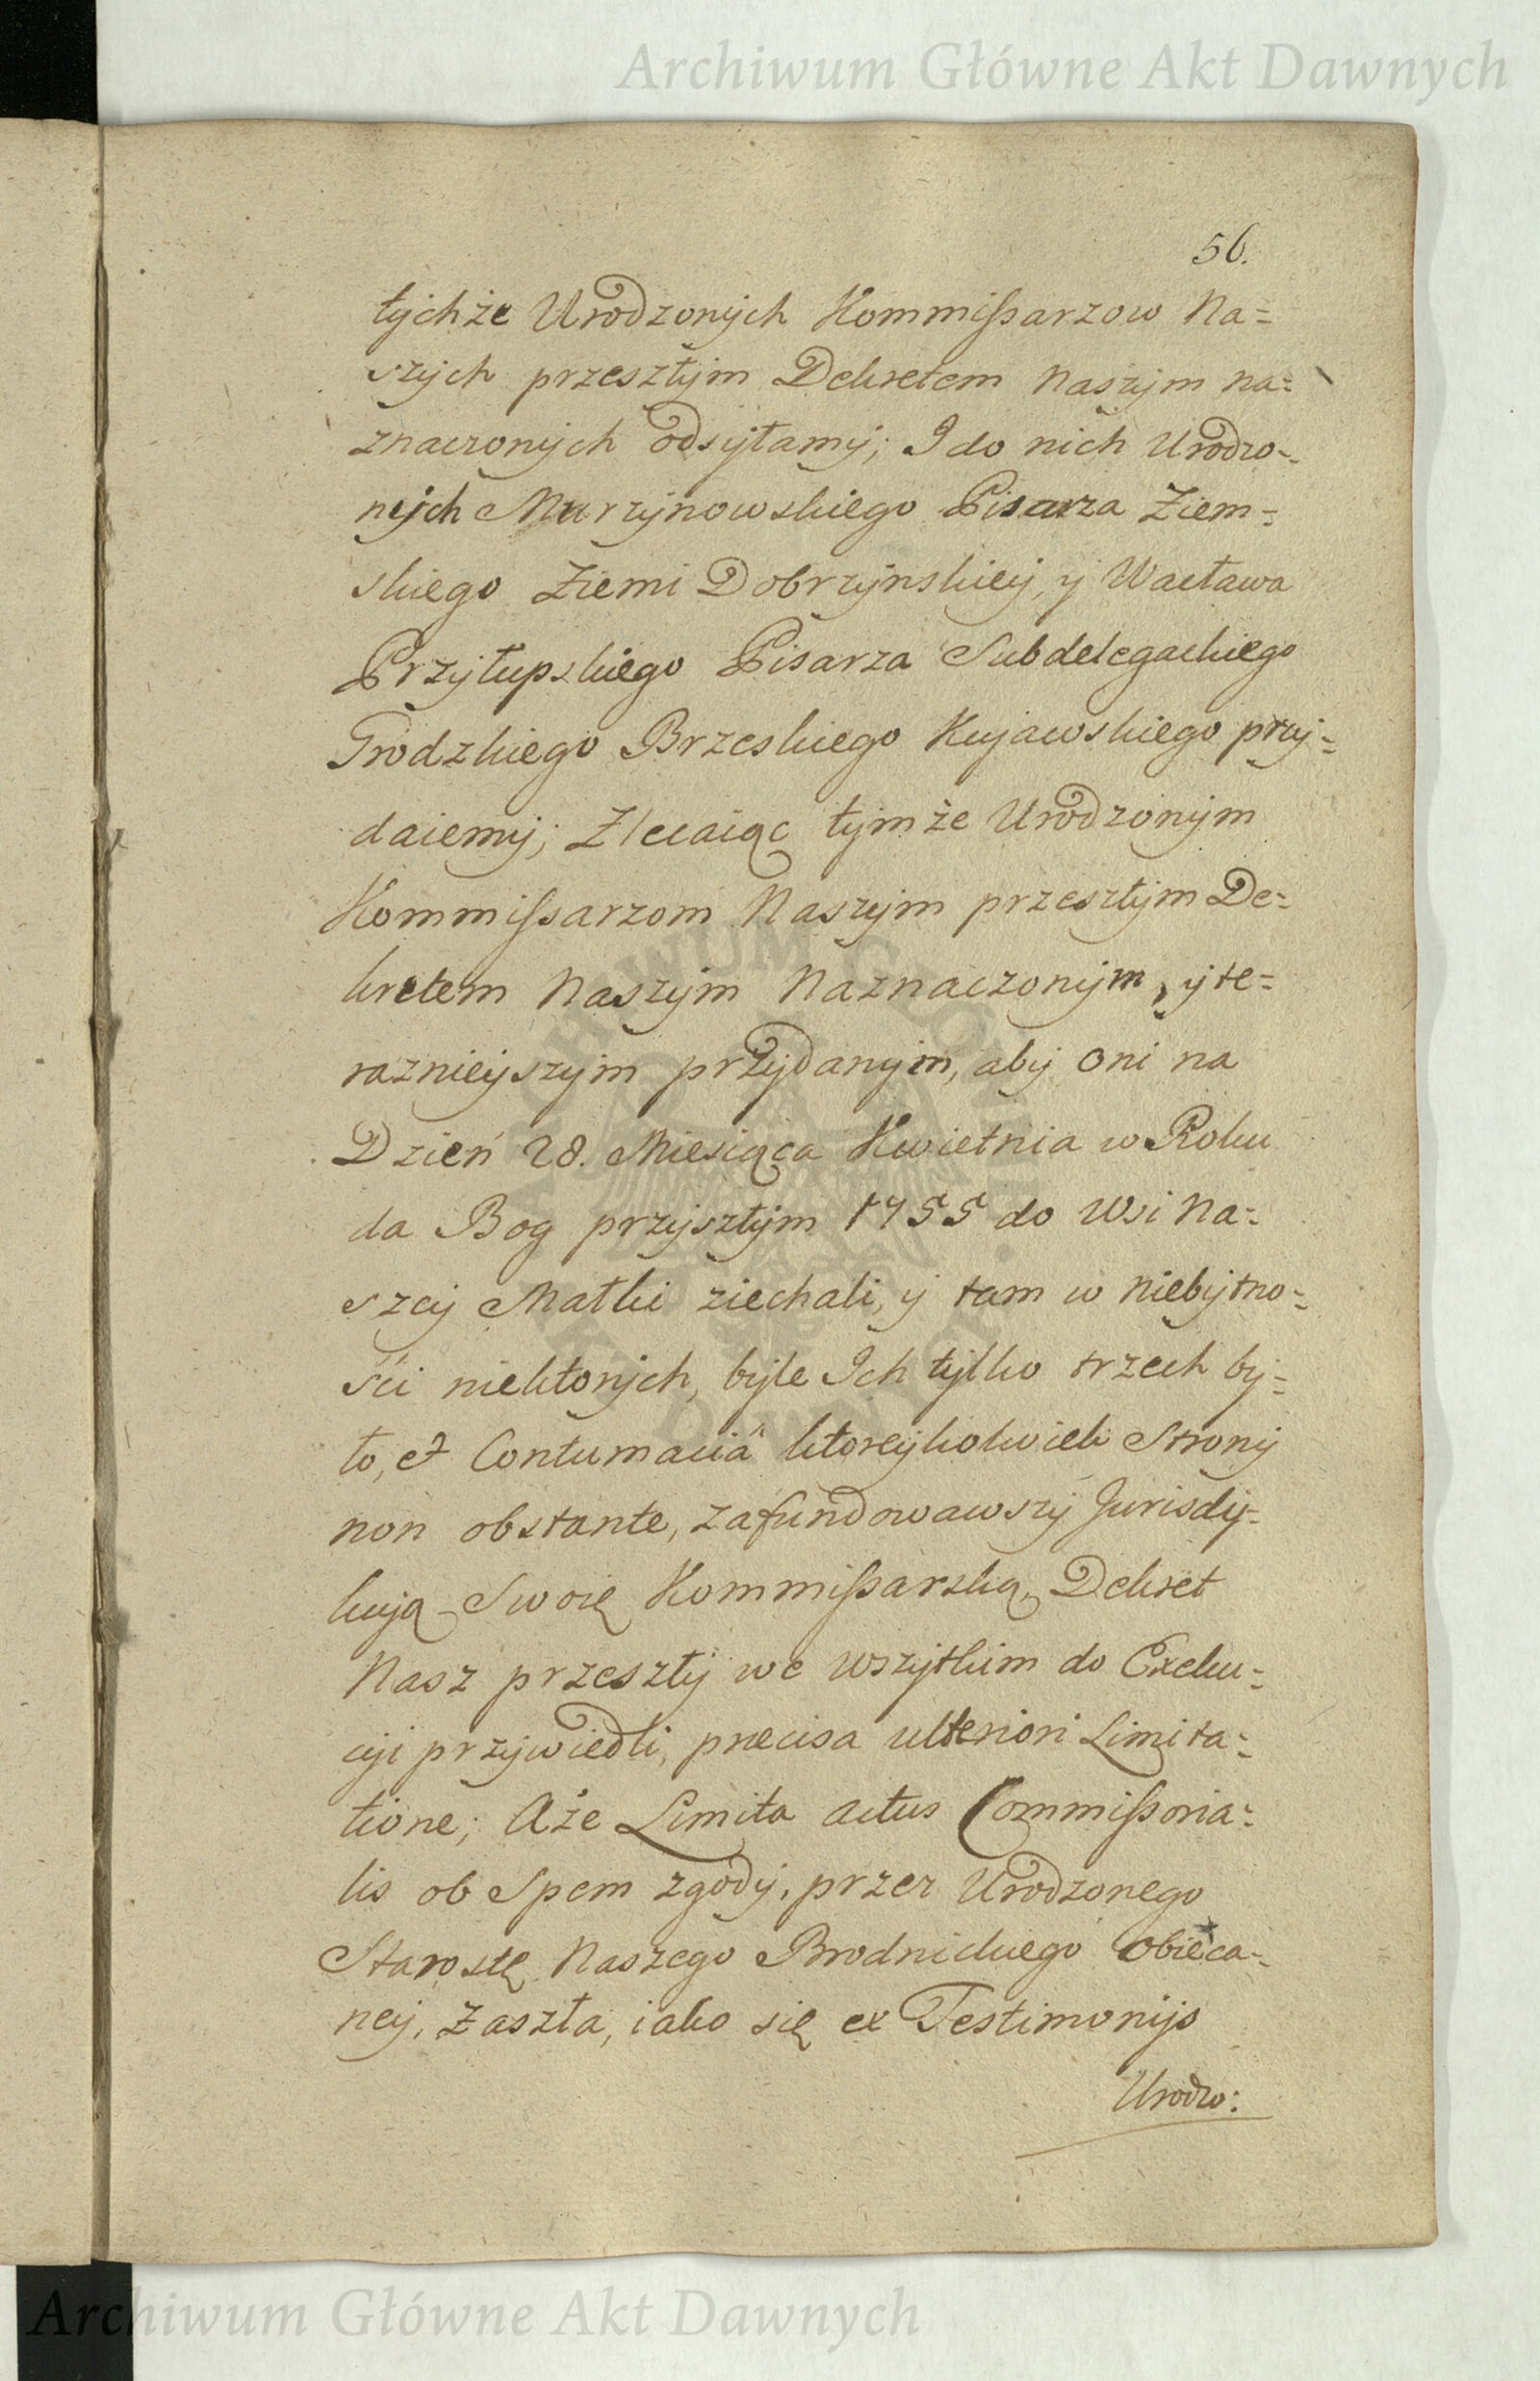 Archiwum Główne Akt Dawnych
56.
tychże Urodzonych Kommissarzow Na=
szych przeszłym Dekretem Naszym na=
znaczonych odsyłamy; I do nich Urodzo=
nych Murzynowskiego Pisarza Ziem=
skiego Ziemi Dobrzynskiey, y Wacława
Przyłupskiego Pisarza Subdelegackiego
Grodzkiego Brzeskiego Kujawskiego przy=
daiemy; Zlecaiąc tymże Urodzonym
Kommissarzom Naszym przeszłym De=
kretem Naszym Naznaczonym, y te=
raznieyszym przydanym, aby oni na
Dzień 28. Miesiąca Kwietnia w Roku
da Bog przyszłym 1755 do Wsi Na=
szey Matki ziechali, y tam w niebytno=
ści niektorych, byle Ich tylko trzech by=
ło, et Contumaciâ ktoreykolwiek Strony
non obstante, zafundowawszy Jurisdy=
kcyą Swoię Kommissarską, Dekret
Nasz przeszły we wszytkim do Exeku=
cyi przywiedli, præcisa ulteriori Limita=
tione; A że Limita actus Commissoria=
lis ob Spem zgody, przez Urodzonego
Starostę Naszego Brodnickiego obieca=
ney, zaszła, iako się ex Testimonijs
Urodzo:
Archiwum Główne Akt Dawnych